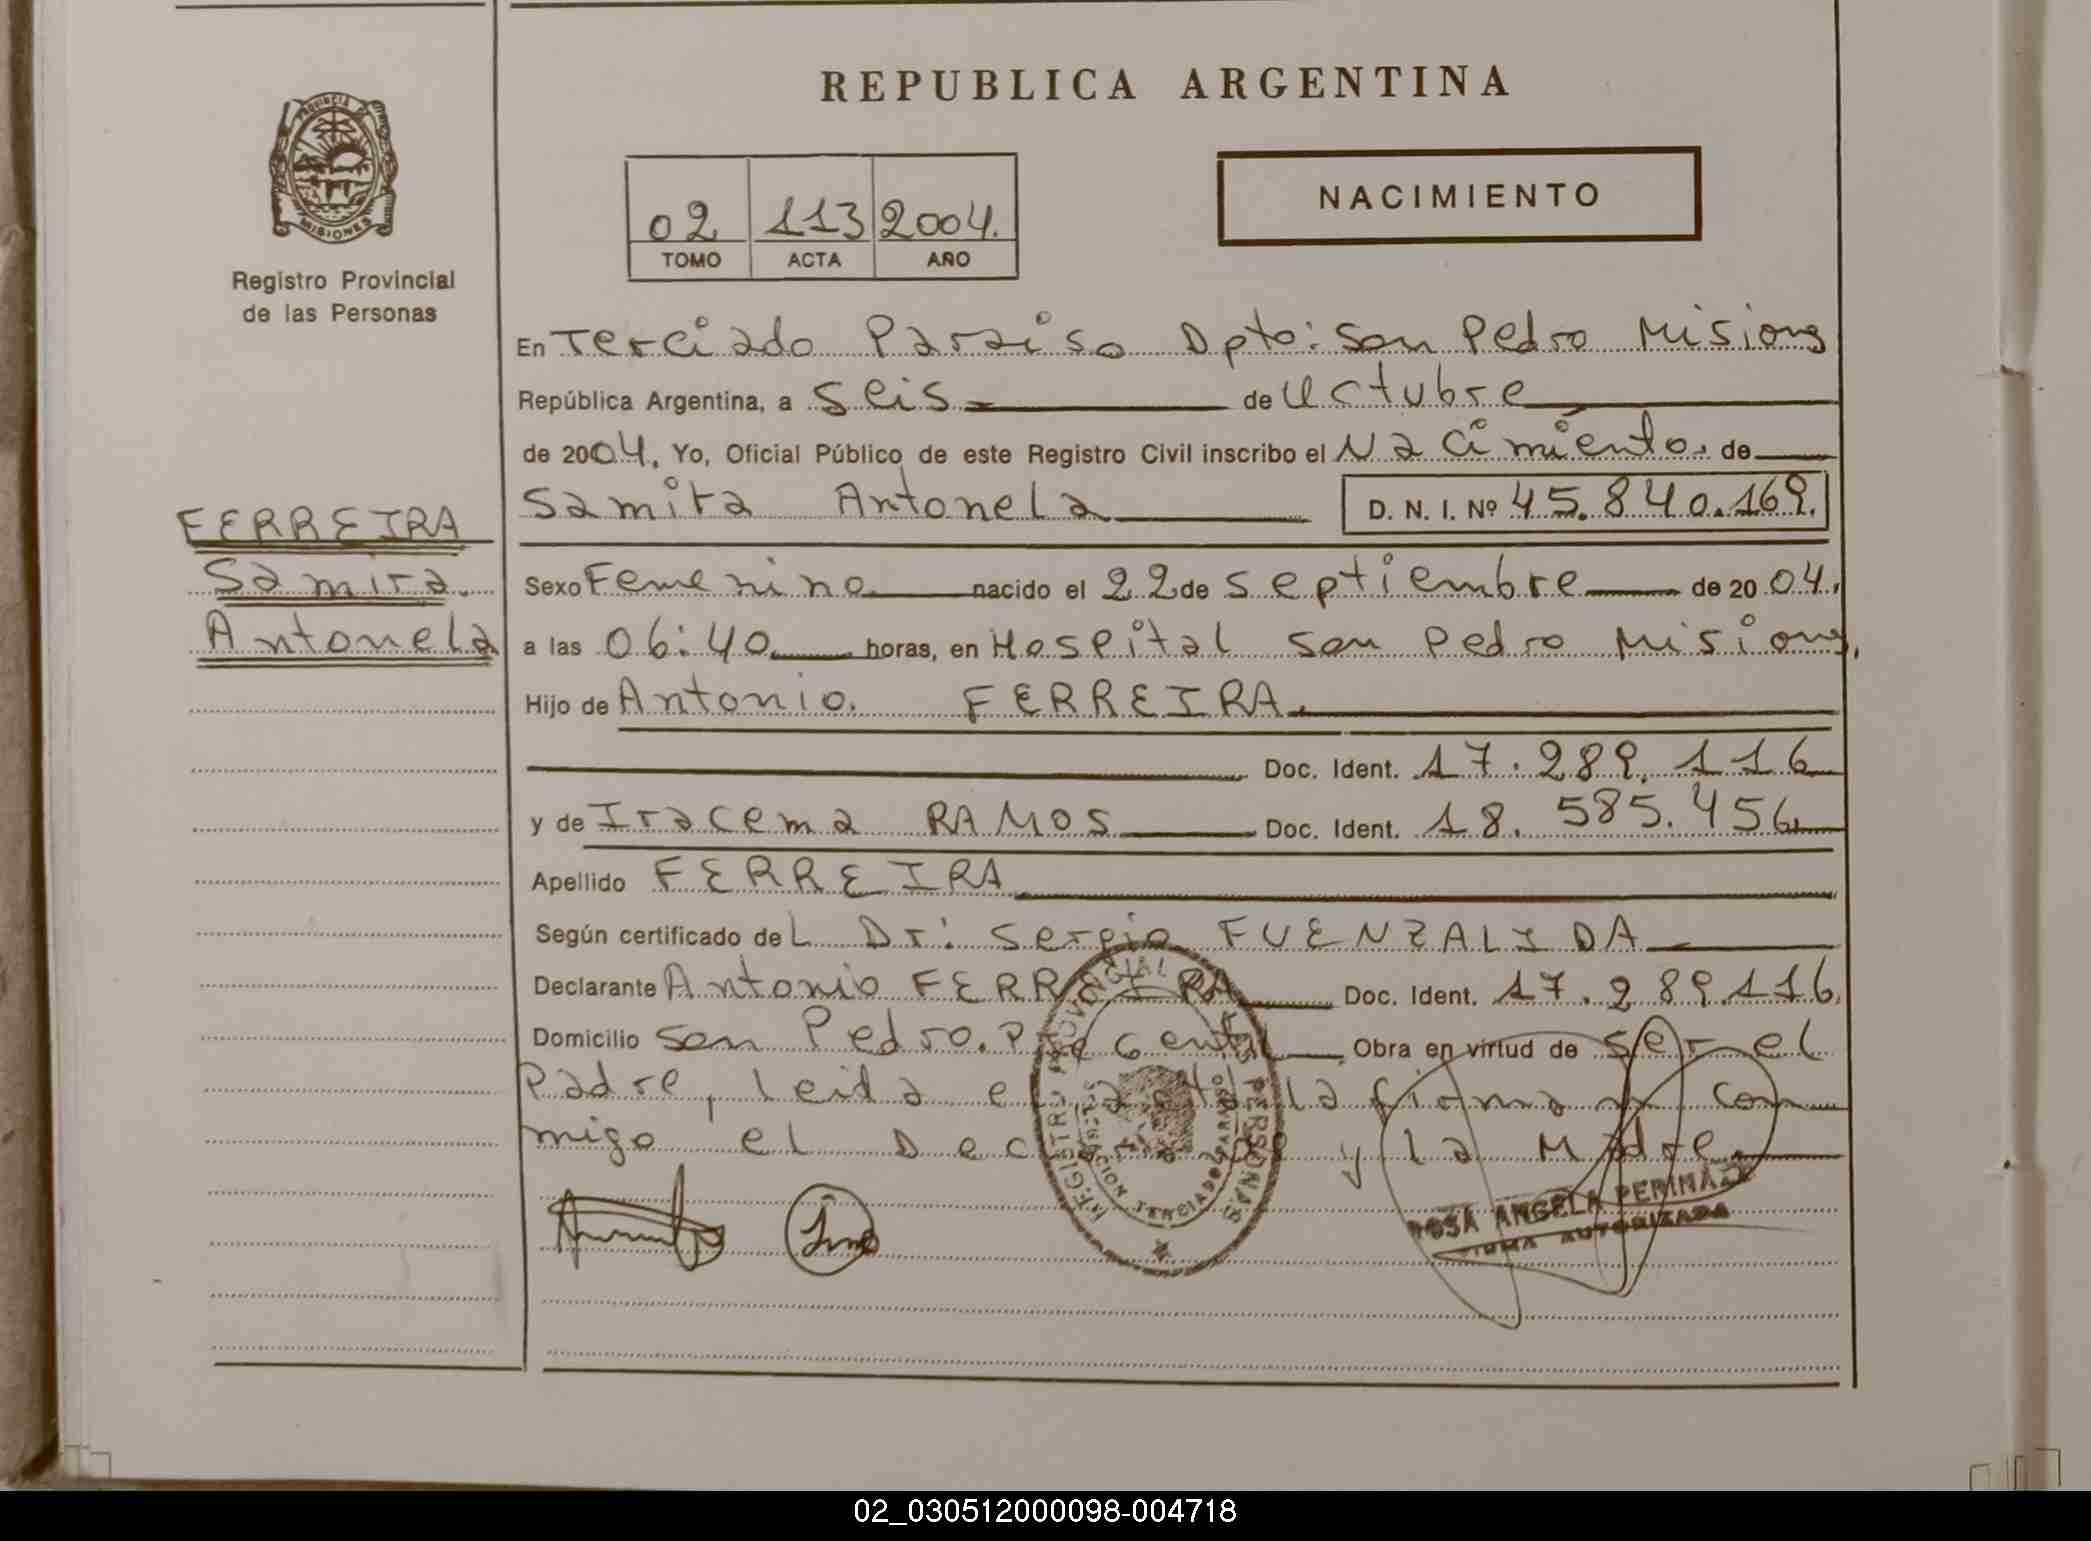 REPUBLICA ARGENTINA
PROVINCIA
MISIONES
Registro Provincial
de las Personas
02 113 2004.
TOMO ACTA AÑO
NACIMIENTO
En Terciado Paraiso Dpto: San Pedro Misiones
República Argentina, a seis de Octubre
de 2004. Yo, Oficial Público de este Registro Civil inscribo el Nacimiento. de
Samira Antonela D. N. I. Nº 45.840.169.
FERREIRA
Samira.
Antonela
Sexo Femenino nacido el 22 de septiembre de 2004.
a las 06:40 horas, en Hospital San Pedro Misiones.
Hijo de Antonio. FERREIRA.
Doc. Ident. 17.289.116
y de Iracema RAMOS Doc. Ident. 18.585.456
Apellido FERREIRA
Según certificado de L Dr: Sergio FUENZALIDA
Declarante Antonio FERREIRA Doc. Ident. 17.289.116.
Domicilio San Pedro. Obra en virtud de ser el
Padre, leida el acta la firman con
migo el y la Madre
REGISTRO PROVINCIAL DE LAS PERSONAS
TERCIADO PARAISO
ROSA ANGELA
FIRMA AUTORIZADA
02_030512000098-004718